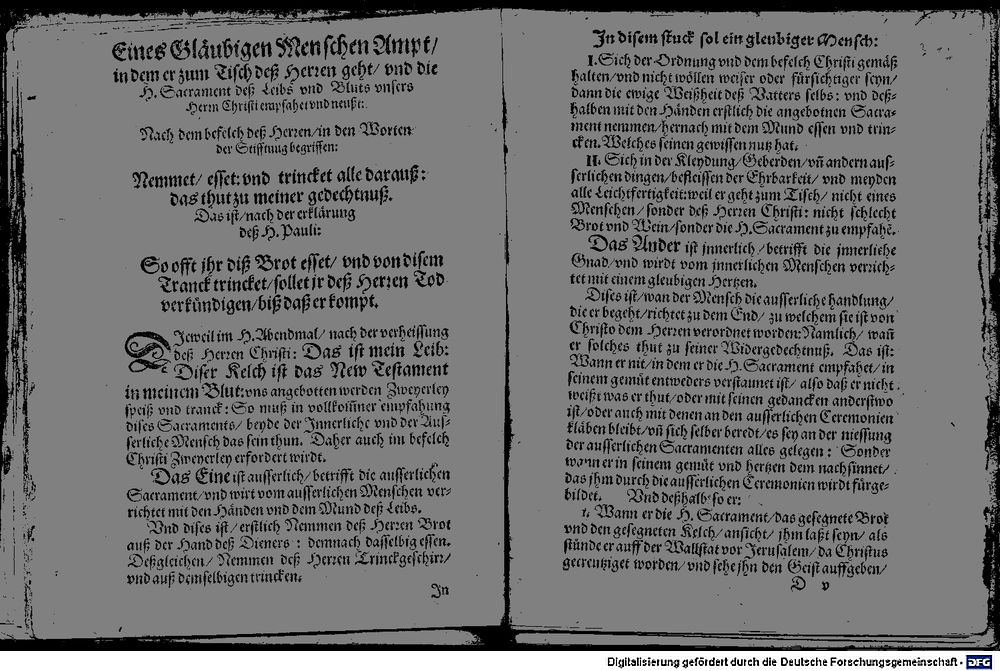 Eines Gläubigen Menschen Ampt/
in dem er zum Tisch deß Herren geht/ vnd die
H. Sacrament deß Leibs vnd Bluts vnsers
Herrn Christi empfahet vnd neußt:
Nach dem befelch deß Herren/ in den Worten
der Stifftung begriffen:
Nemmet/ esset: vnd trincket alle darauß:
das thut zu meiner gedechtnuß.
Das ist/ nach der erklärung
deß H. Pauli:
So offt jhr diß Brot esset/ vnd von disem
Tranck trincket/ sollet jr deß Herren Tod
verkündigen/ biß daß er kompt.
DJeweil im H. Abendmal/ nach der verheissung
deß Herren Christi: Das ist mein Leib:
Diser Kelch ist das New Testament
in meinem Blut: vns angebotten werden Zweyerley
speiß vnd tranck: So muß in vollkom̃ner empfahung
dises Sacraments/ beyde der Jnnerliche vnd der Aus-
serliche Mensch das sein thun. Daher auch im befelch
Christi Zweyerley erfordert wirdt.
Das Eine ist ausserlich/ betrifft die ausserlichen
Sacrament/ vnd wirt vom ausserlichen Menschen ver-
richtet mit den Händen vnd dem Mund deß Leibs.
Vnd dises ist/ erstlich Nemmen deß Herren Brot
auß der Hand deß Dieners: demnach dasselbig essen.
Deßgleichen/ Nemmen deß Herren Trinckgeschirr/
vnd auß demselbigen trincken.
Jn
Jn disem stuck sol ein gleubiger Mensch:
I. Sich der Ordnung vnd dem befelch Christi gemäß
halten/ vnd nicht wöllen weiser oder fürsichtiger seyn/
dann die ewige Weißheit deß Vatters selbs: vnd deß-
halben mit den Händen erstlich die angebotnen Sacra-
ment nemmen/ hernach mit dem Mund essen vnd trin-
cken. Welches seinen gewissen nutz hat.
II. Sich in der Kleydung/ Geberden/ vñ andern aus-
serlichen dingen/ befleissen der Ehrbarkeit/ vnd meyden
alle Leichtfertigkeit: weil er geht zum Tisch/ nicht eines
Menschen/ sonder deß Herren Christi: nicht schlecht
Brot vnd Wein/ sonder die H. Sacrament zu empfahẽ.
Das Ander ist jnnerlich/ betrifft die jnnerliche
Gnad/ vnd wirdt vom jnnerlichen Menschen verrich-
tet mit einem gleubigen Hertzen.
Dises ist/ wan der Mensch die ausserliche handlung/
die er begeht/ richtet zu dem End/ zu welchem sie ist von
Christo dem Herren verordnet worden: Namlich/ wañ
er solches thut zu seiner Widergedechtnuß. Das ist:
Wann er nit/ in dem er die H. Sacrament empfahet/ in
seinem gemüt entweders verstaunet ist/ also daß er nicht
weißt was er thut/ oder mit seinen gedancken anderstwo
ist/ oder auch mit denen an den ausserlichen Ceremonien
kläben bleibt/ vñ sich selber beredt/ es sey an der niessung
der ausserlichen Sacramenten alles gelegen: Sonder
wann er in seinem gemüt vnd hertzen dem nachsinnet/
das jhm durch die ausserlichen Ceremonien wirdt fürge-
bildet. Vnd deßhalb so er:
1. Wann er die H. Sacrament/ das gesegnete Brot
vnd den gesegneten Kelch/ ansicht/ jhm laßt seyn/ als
stünde er auff der Wallstat vor Jerusalem/ da Christus
gecreutziget worden/ vnd sehe jhn den Geist auffgeben/
D v
Digitalisierung gefördert durch die Deutsche Forschungsgemeinschaft - DFG